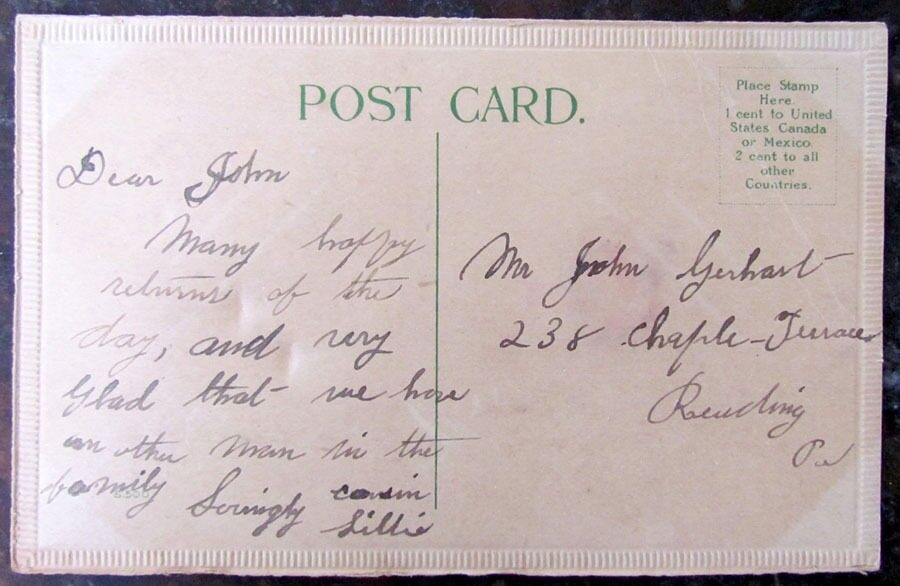 POST CARD.
Place Stamp
Here.
1 cent to United
States Canada
or Mexico
2 cent to all
other
Countries.
Dear John
Many happy
returns of the
day, and very
Glad that we have
another man in the
family
Lovingly cousin
Lillie
Mr John Gerhart
238 Chaple-Terrace
Reading
Pa